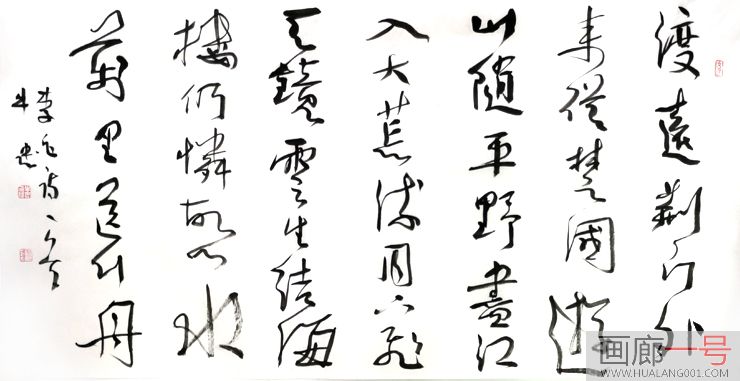 渡遠荊门外
来從楚國遊
山隨平野盡江
入大荒流月下飛
天鏡雲生結海
樓仍憐故鄉水
萬里送行舟
李白诗一首
画廊一号
WWW.HUALANG001.COM